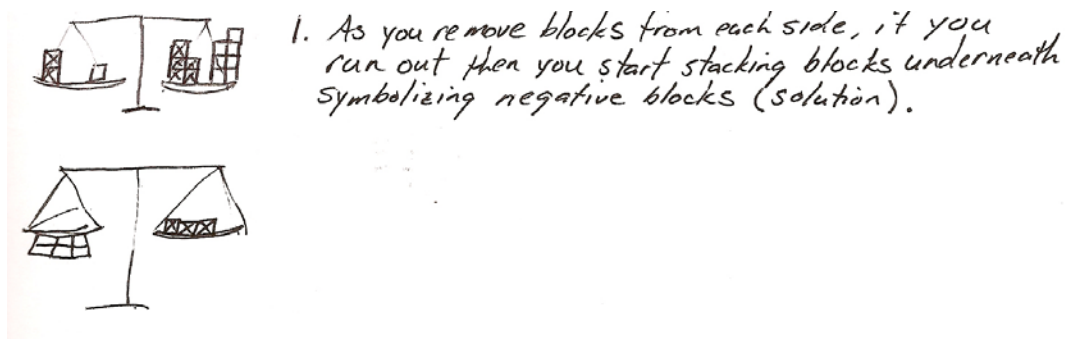 1. As you remove blocks from each side, if you
run out then you start stacking blocks underneath
symbolizing negative blocks (solution).